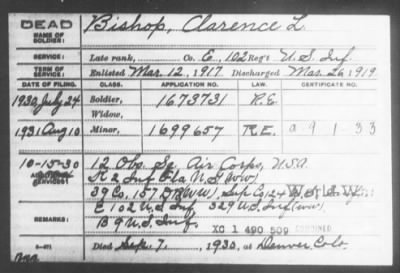 DEAD
NAME OF SOLDIER: Bishop, Clarence L.
SERVICE: Late rank, Co. E, 102 Reg't U.S. Inf.
TERM OF SERVICE: Enlisted Mar. 12, 1917. Discharged Mar. 26, 1919
DATE OF FILING. CLASS. APPLICATION NO. LAW. CERTIFICATE NO.
1930 July 24 Soldier, 1673731 R.E.
Widow,
1931 Aug 10 Minor, 1699657 R.E. a 9 1-33
10-15-30 12 Obs. Sq. Air Corps, U.S.A.
ADDITIONAL SERVICES: K 2 Inf Fla N.G (WW)
39 Co. 157 D.B. (WW) Sup Co, 124 World War
E 102 U.S Inf 329 U.S. Inf (WW)
REMARKS: B 9 U.S. Inf. XC 1 490 509 COMBINED
Died Sep. 7, 1930, at Denver, Colo.